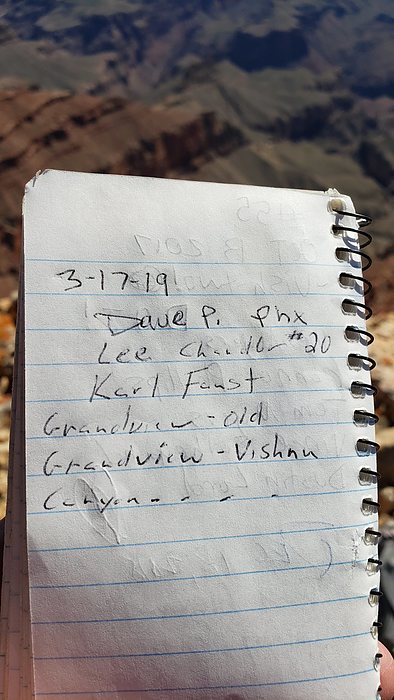 3-17-19
Dave P. Phx
Lee Chandler #20
Karl Faust
Grandview - old
Grandview - Vishnu
Canyon - - - -